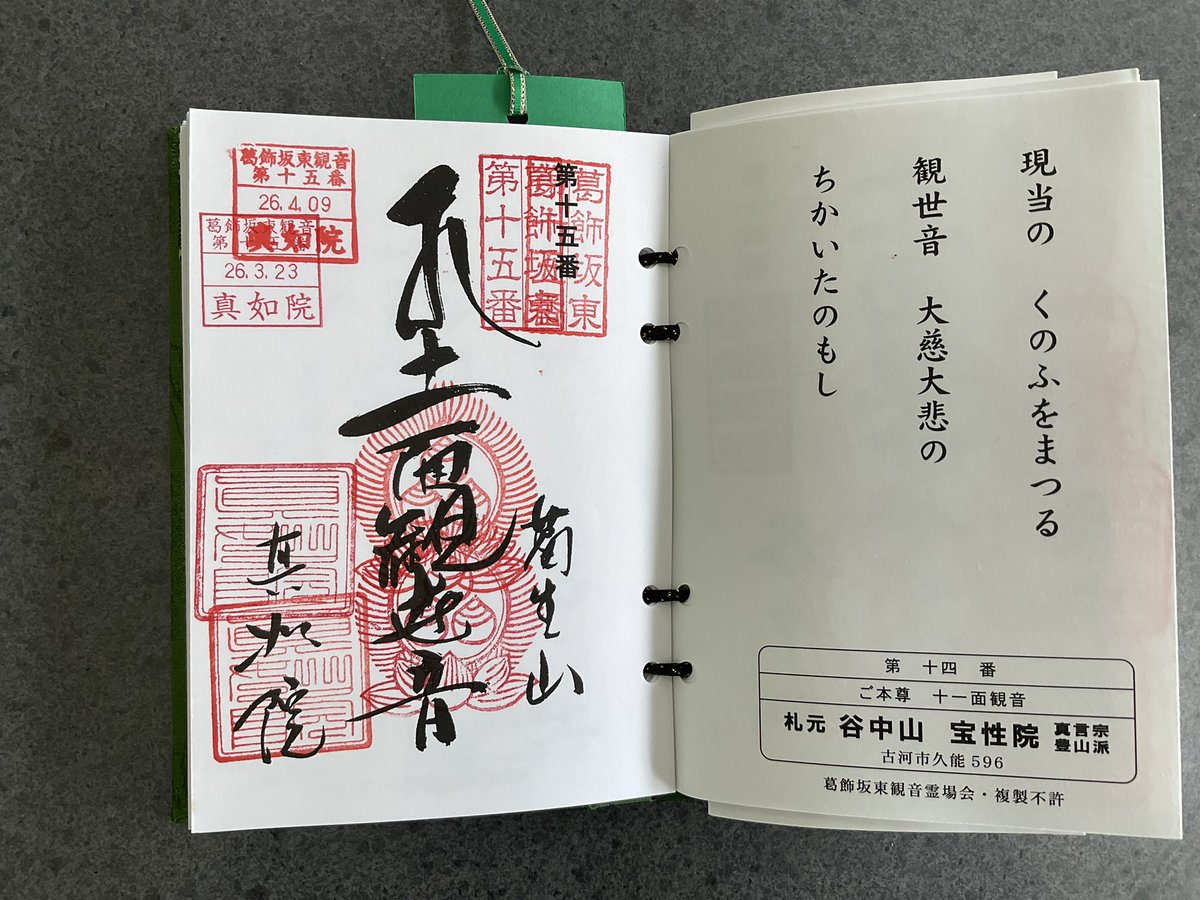 現当の　くのふをまつる
観世音　大慈大悲の
ちかいたのもし
第　十四　番
ご本尊　十一面観音
札元 谷中山　宝性院 真言宗 豊山派
古河市久能596
葛飾坂東観音霊場会・複製不許
第十五番
葛飾坂東
第十五番
葛飾坂東
生山
十一面観世音
真如院
葛飾坂東観音
第十五番
26.4.09
真如院
葛飾坂東観音
第十五番
26.3.23
真如院